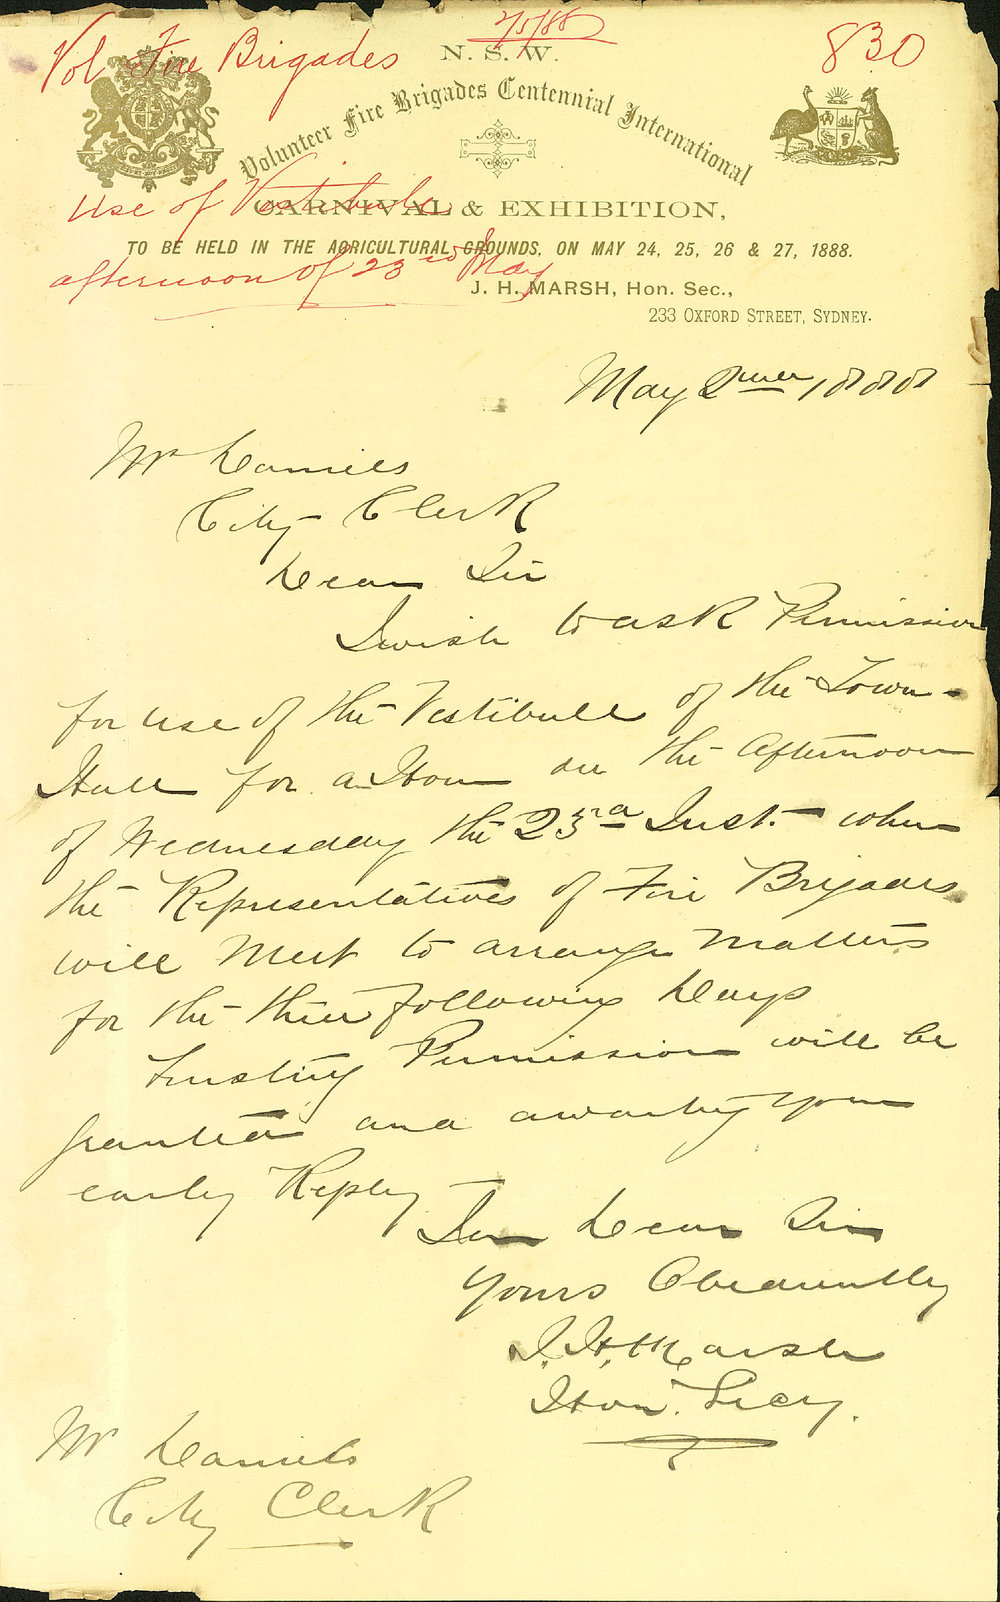 2/5/88
830
Vol Fire Brigades
Use of Vestibule
afternoon of 23rd May
N. S. W.
Volunteer Fire Brigades Centennial International
CARNIVAL & EXHIBITION,
TO BE HELD IN THE AGRICULTURAL GROUNDS, ON MAY 24, 25, 26 & 27, 1888.
J. H. MARSH, Hon. Sec.,
233 OXFORD STREET, SYDNEY.
May 2nd 1888
Mr Daniels
City Clerk
Dear Sir
I wish to ask Permission
for use of the Vestibule of the Town-
Hall for a Hour on the Afternoon
of Wednesday the 23rd Inst. when
the Representatives of Fire Brigades
will Meet to arrange Matters
for the three following Days
Trusting Permission will be
granted and awaiting your
early Reply
I am Dear Sir
Yours Obediently
J. H. Marsh
Hon. Secy.
Mr Daniels
City Clerk